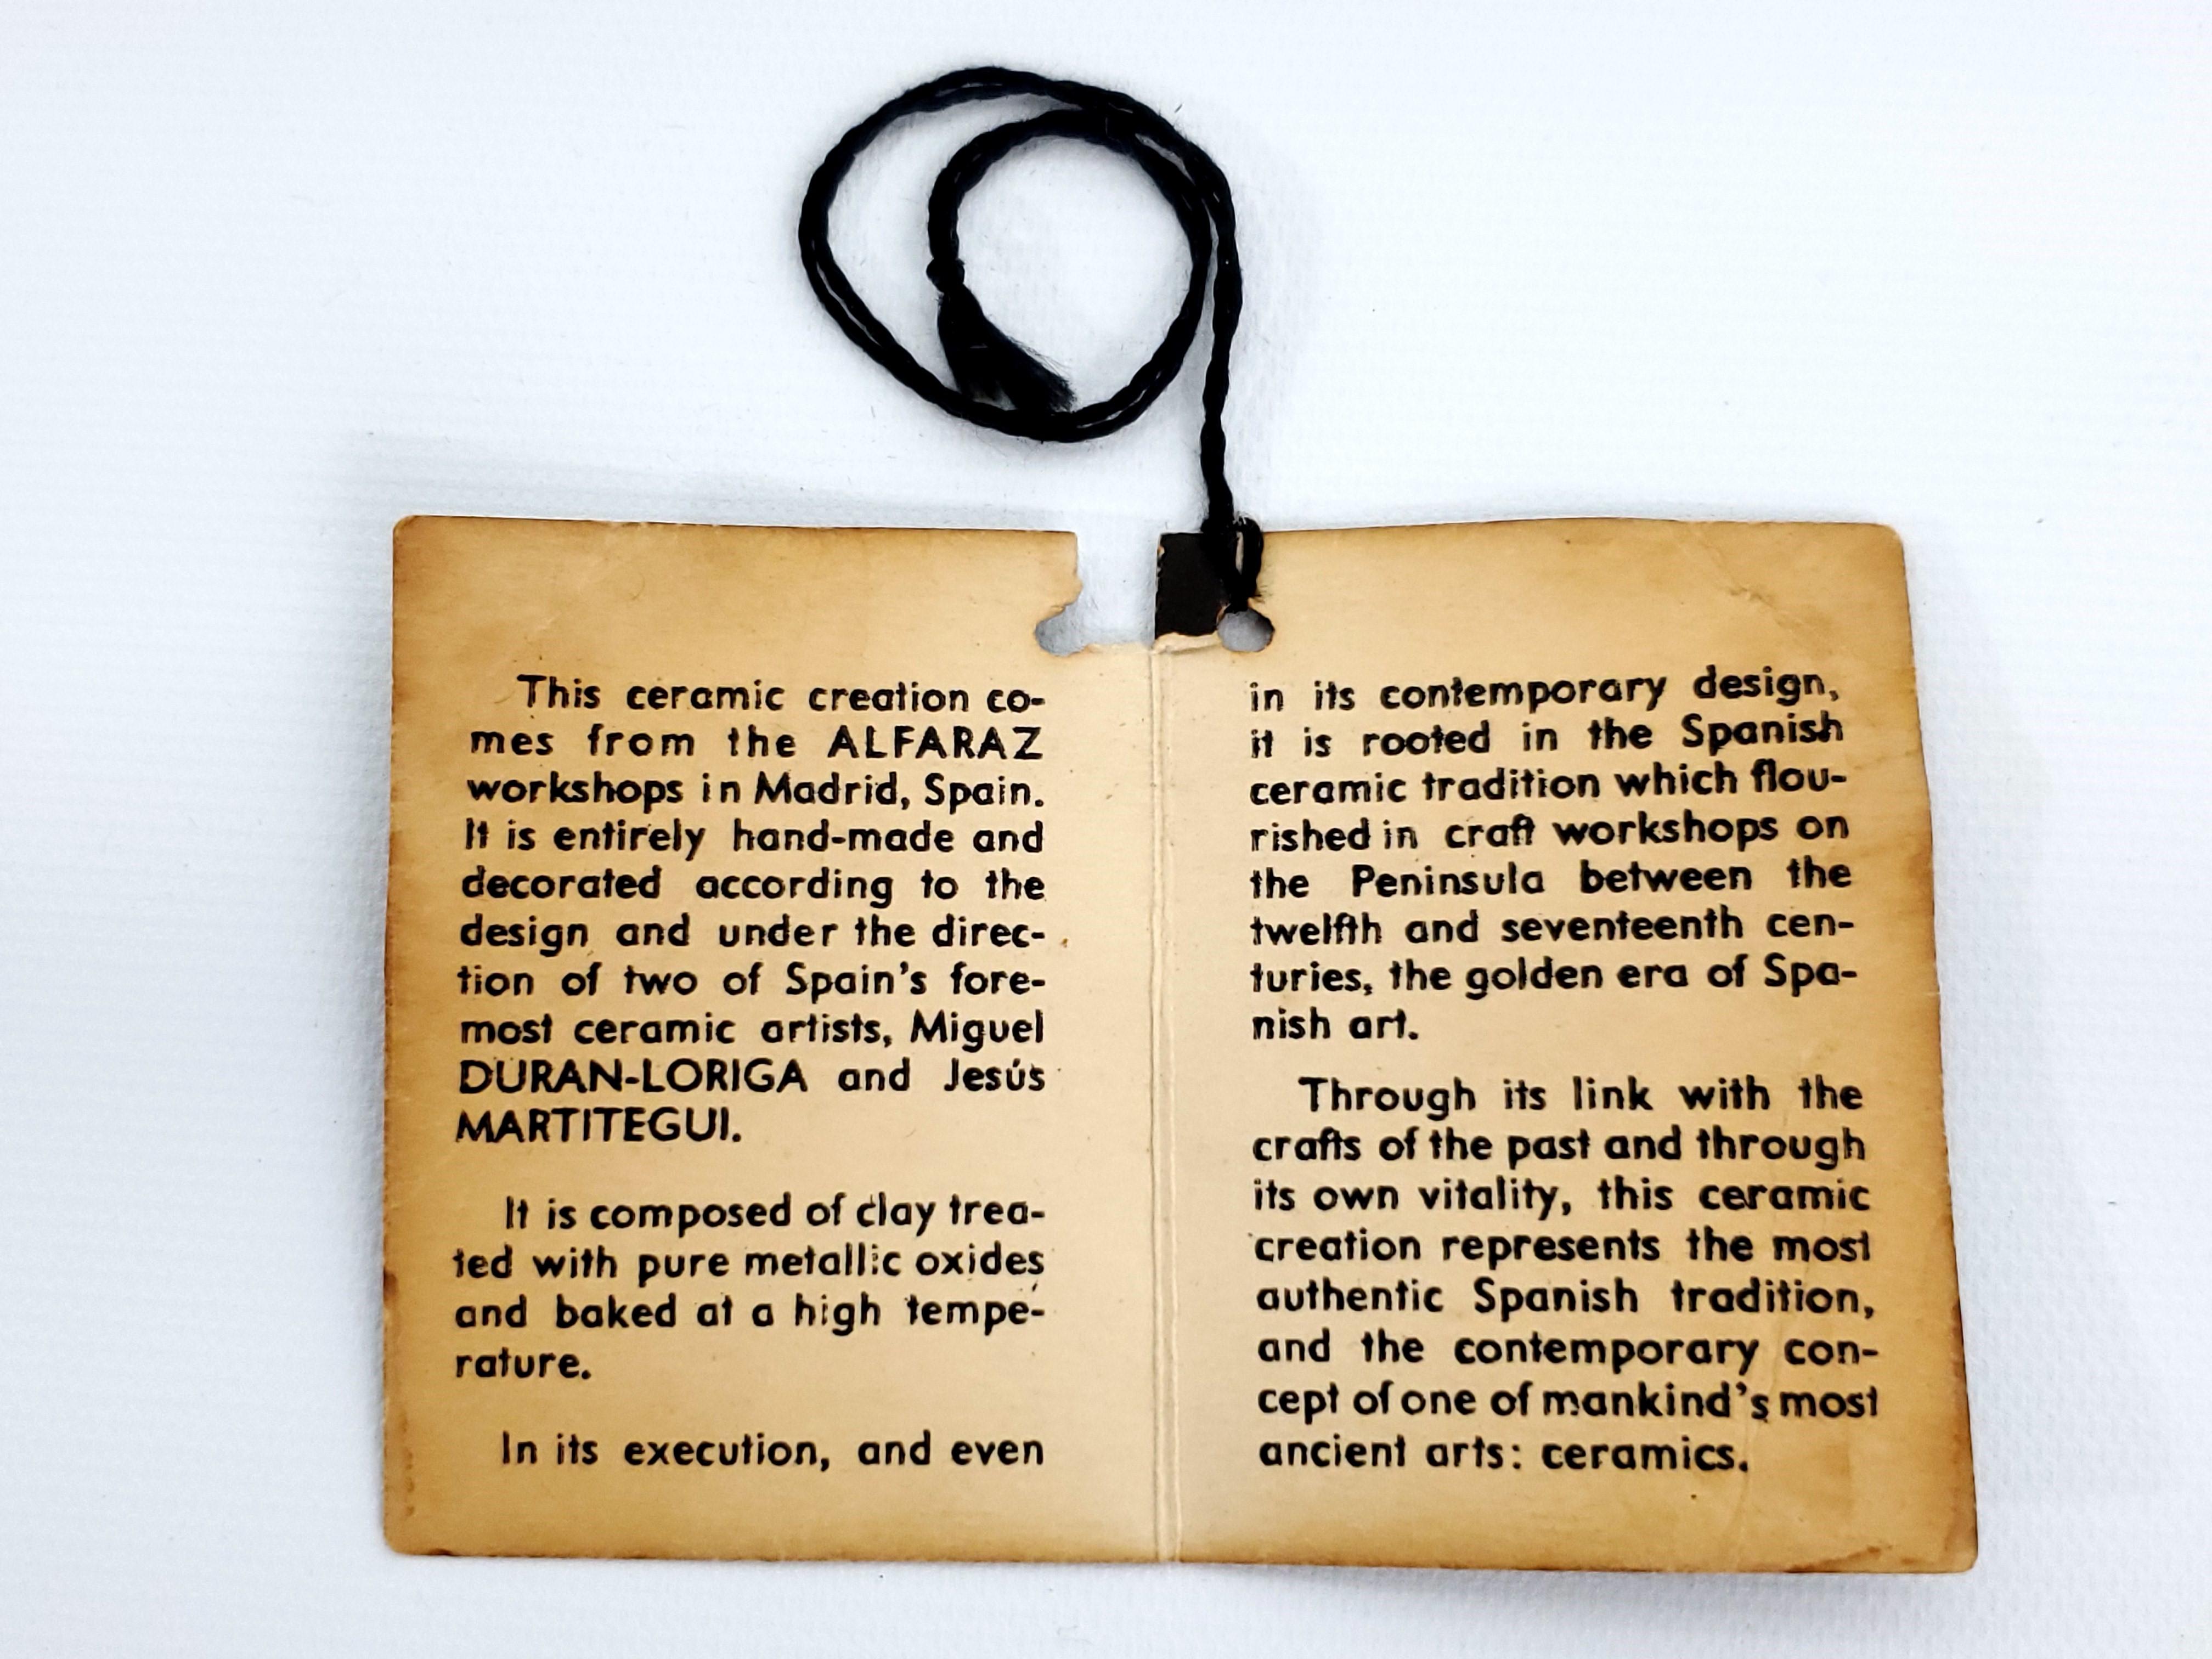 This ceramic creation co-
mes from the ALFARAZ
workshops in Madrid, Spain.
It is entirely hand-made and
decorated according to the
design and under the direc-
tion of two of Spain's fore-
most ceramic artists, Miguel
DURAN-LORIGA and Jesús
MARTITEGUI.
It is composed of clay trea-
ted with pure metallic oxides
and baked at a high tempe-
rature.
In its execution, and even
in its contemporary design,
it is rooted in the Spanish
ceramic tradition which flou-
rished in craft workshops on
the Peninsula between the
twelfth and seventeenth cen-
turies, the golden era of Spa-
nish art.
Through its link with the
crafts of the past and through
its own vitality, this ceramic
creation represents the most
authentic Spanish tradition,
and the contemporary con-
cept of one of mankind's most
ancient arts: ceramics.